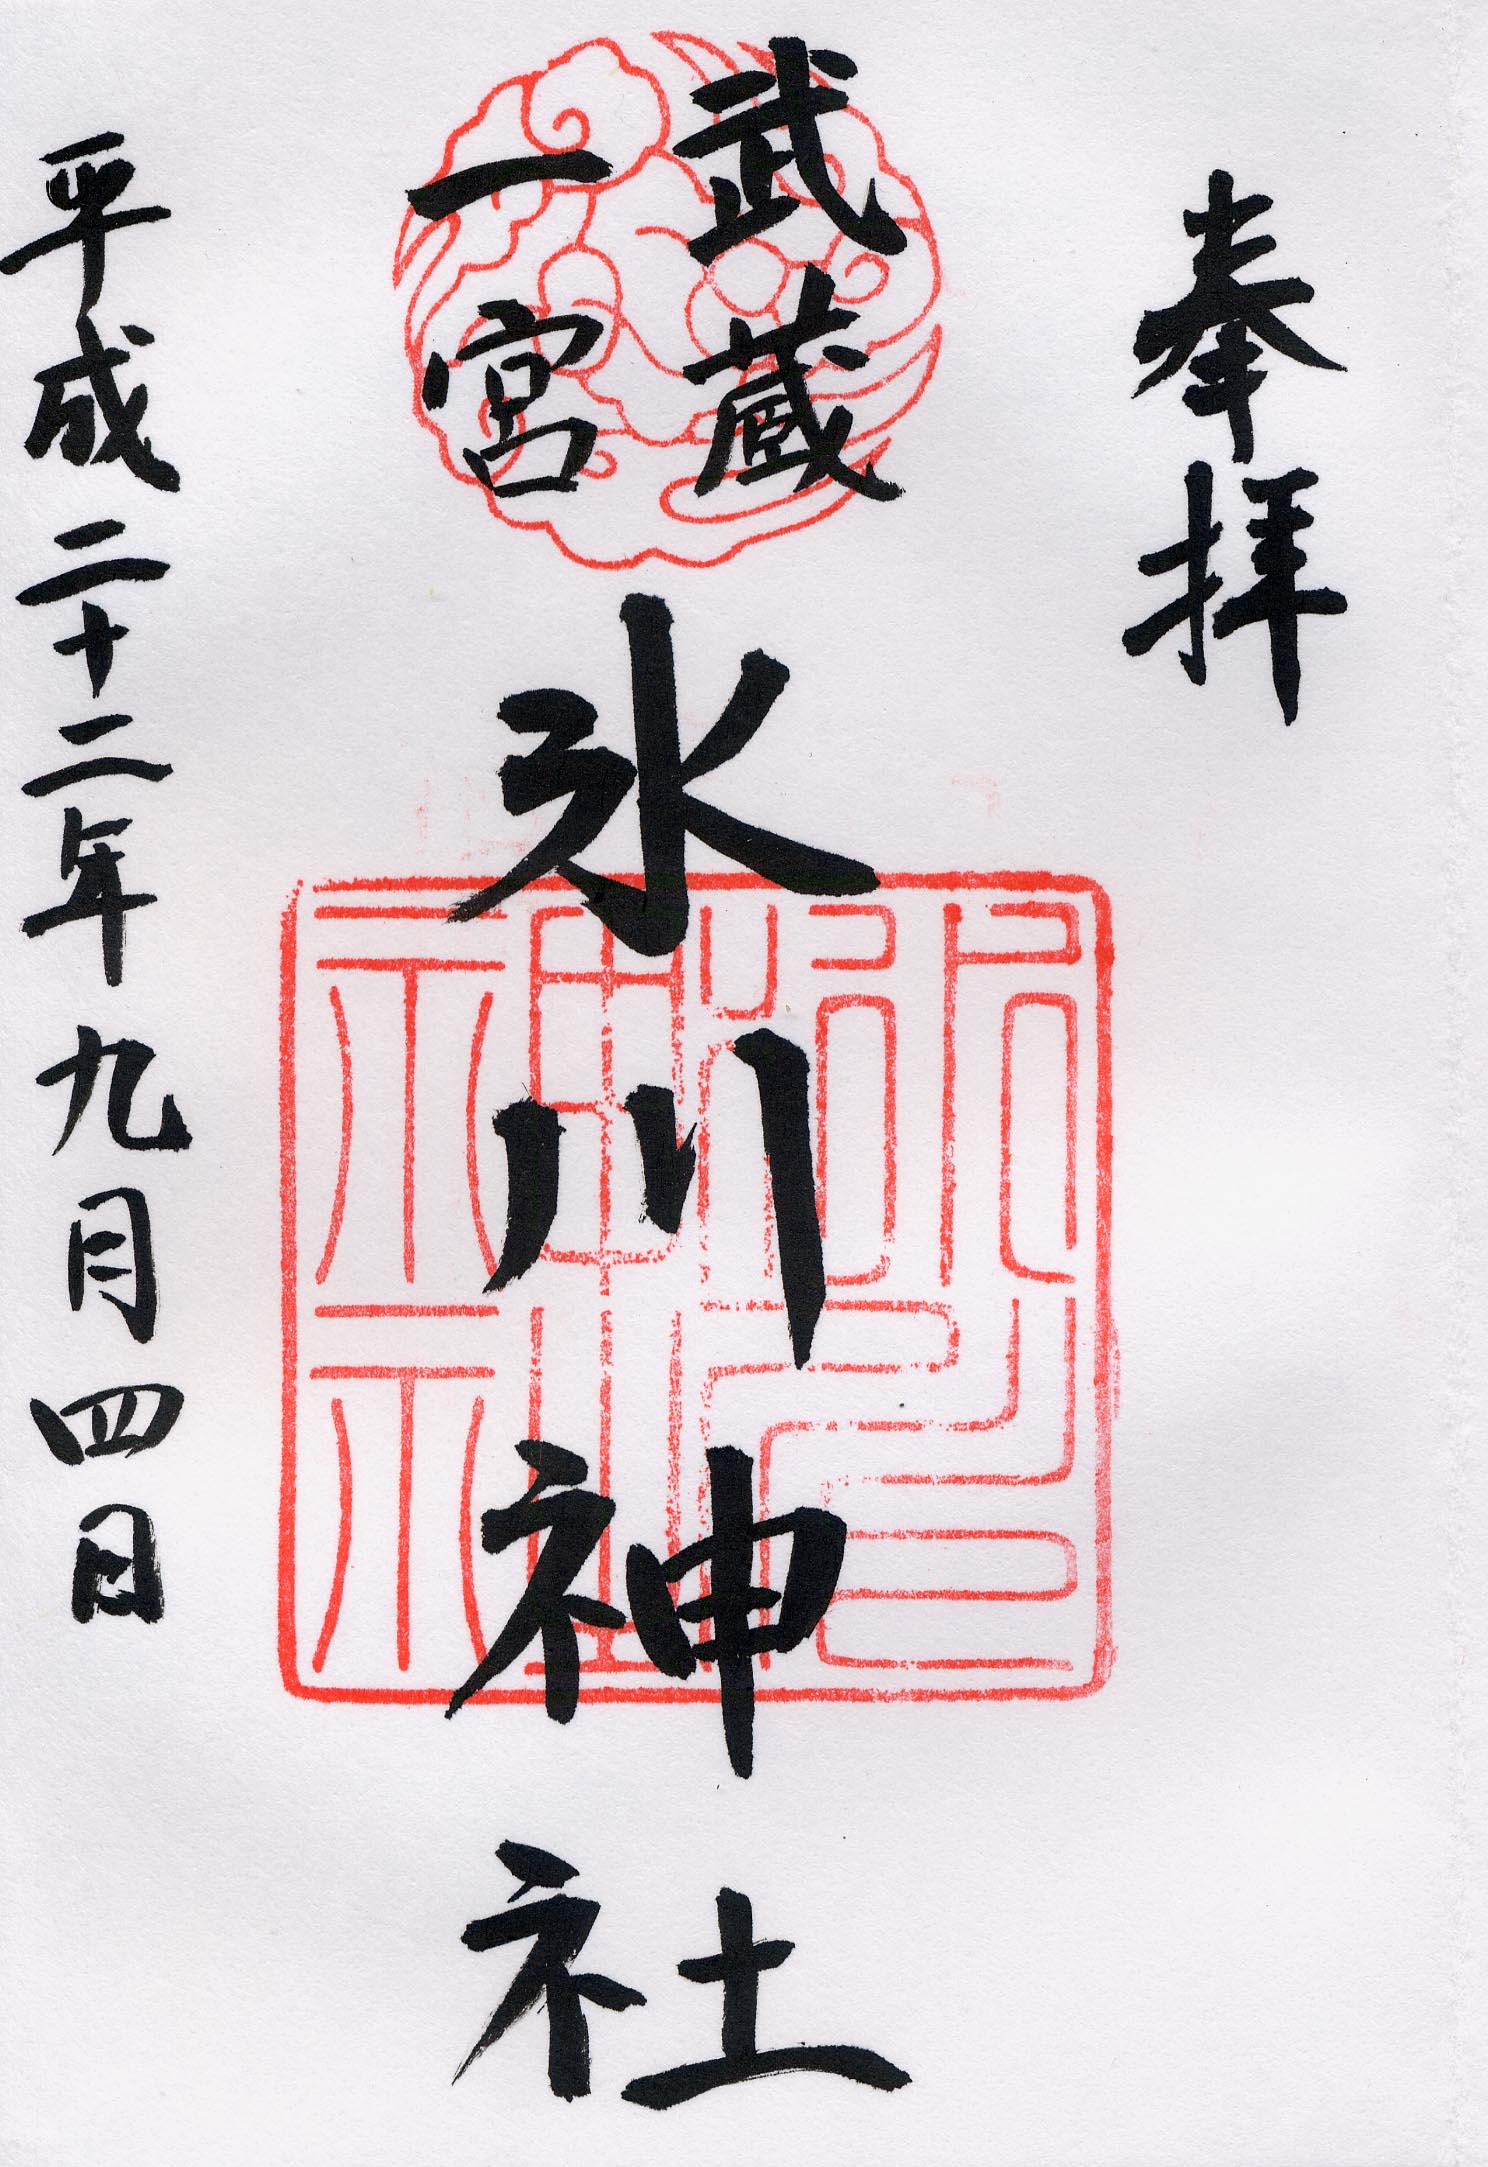 奉拝
武蔵
一宮
氷川神社
平成二十二年九月四日